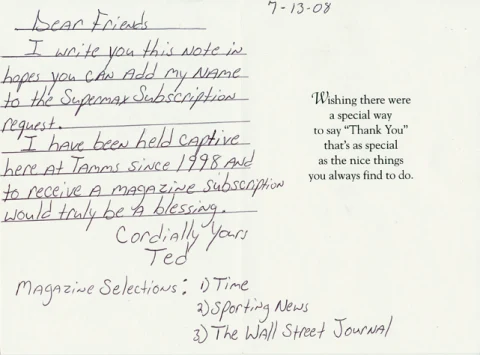 7-13-08
Dear Friends
I write you this note in
hopes you can add my name
to the Supermax Subscription
request.
I have been held captive
here at Tamms since 1998 and
to receive a magazine subscription
would truly be a blessing.
Cordially Yours
Ted
Magazine Selections: 1) Time
2) Sporting News
3) The Wall Street Journal
Wishing there were
a special way
to say “Thank You”
that's as special
as the nice things
you always find to do.